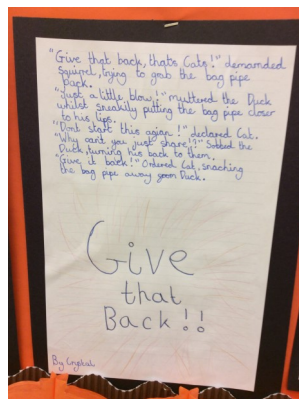 "Give that back, thats Cats!" demanded
Squirrel, trying to grab the bag pipe
back.
"Just a little blow!" muttered the Duck
whilst sneakily putting the bag pipe closer
to his lips.
"Dont start this again!" declared Cat.
"Why cant you just share!?" Sobbed the
Duck, turning his back to them.
"Give it back!" Ordered Cat, snaching
the bag pipe away from Duck.
Give
that
Back!!
By Crystal